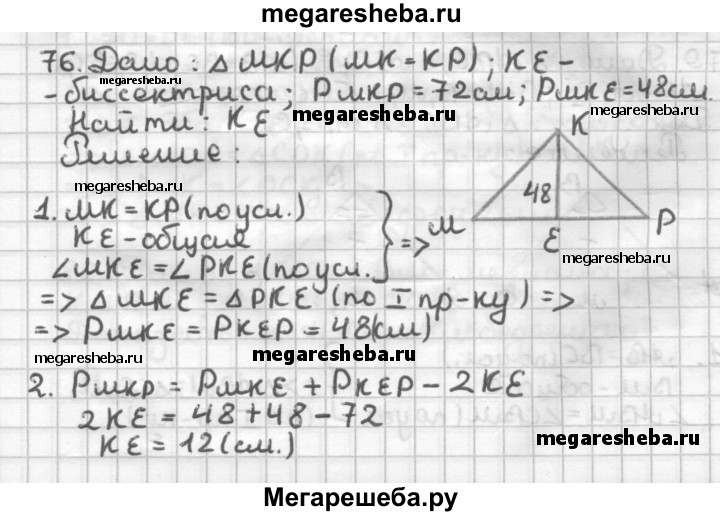 megaresheba.ru
76. Дано: △ МКР (МК=КР); КЕ -
megaresheba.ru
- биссектриса; Р мкр = 72 см; Р мке = 48 см.
megaresheba.ru
megaresheba.ru
Найти: КЕ
Решение:
К
megaresheba.ru
48
1. МК = КР (по усл.)
М
Р
КЕ - общая
} =>
Е
megaresheba.ru
∠МКЕ = ∠РКЕ (по усл.
=> △ МКЕ = △ РКЕ (по I пр-ку) =>
=> Р мке = Р кер = 48(см)
megaresheba.ru
megaresheba.ru
2. Р мкр = Р мке + Р кер - 2КЕ
2КЕ = 48 + 48 - 72
megaresheba.ru
КЕ = 12 (см.)
Мегарешеба.ру